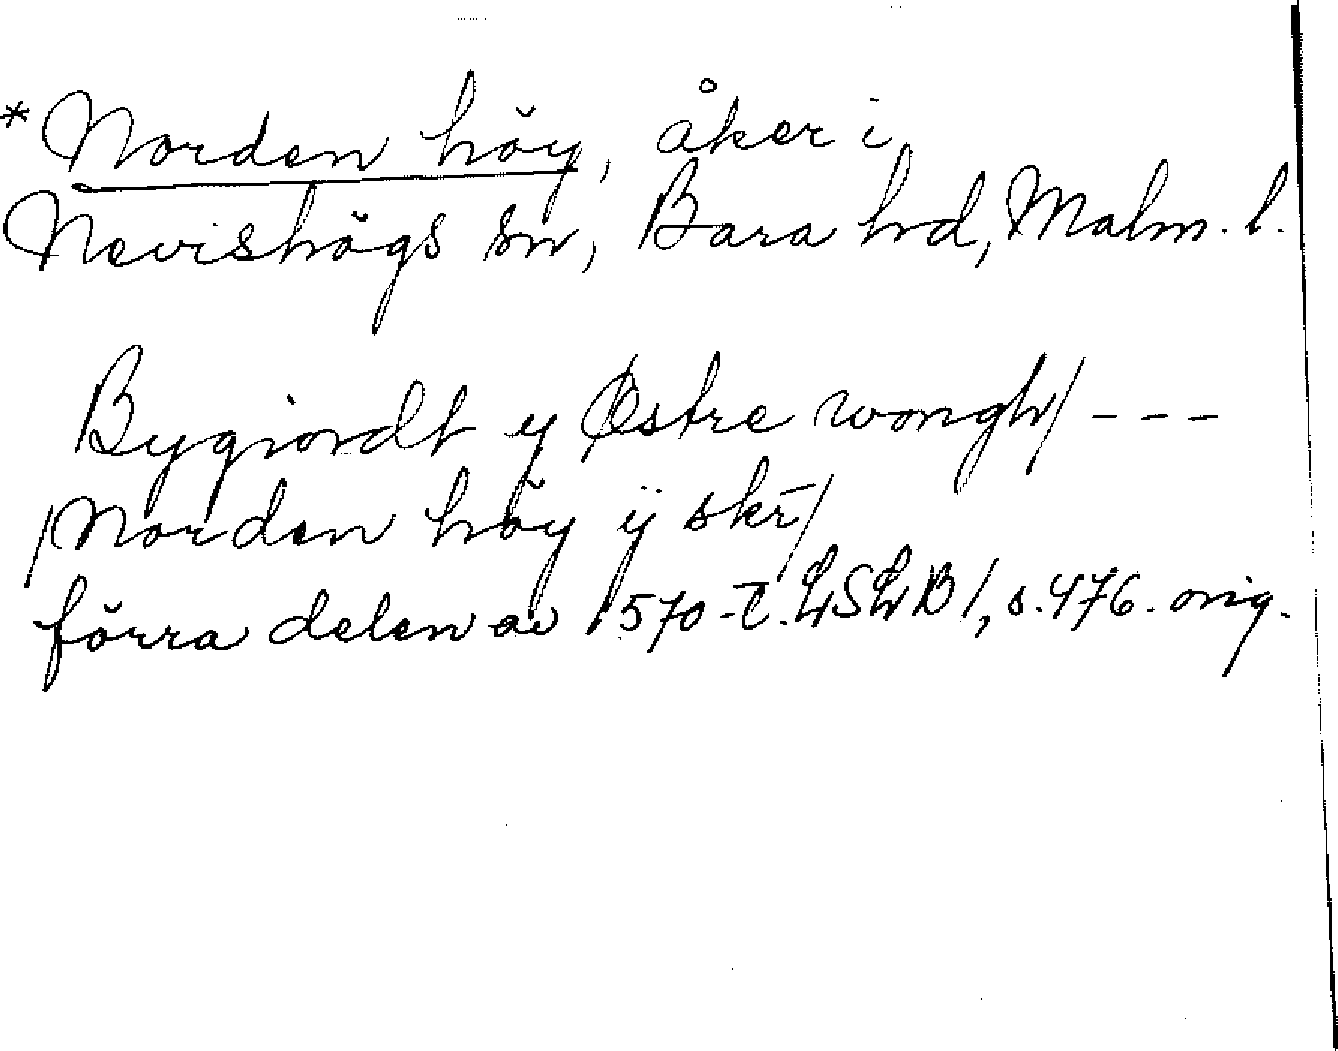 * Norden höy, åker i
Nevishögs sn, Bara hd, Malm. l.
Bygiordt y Østre wongh/ - - -
/Norden höy ij skr̄/
förra delen av 1570-t. LSLB 1, s. 476. orig.